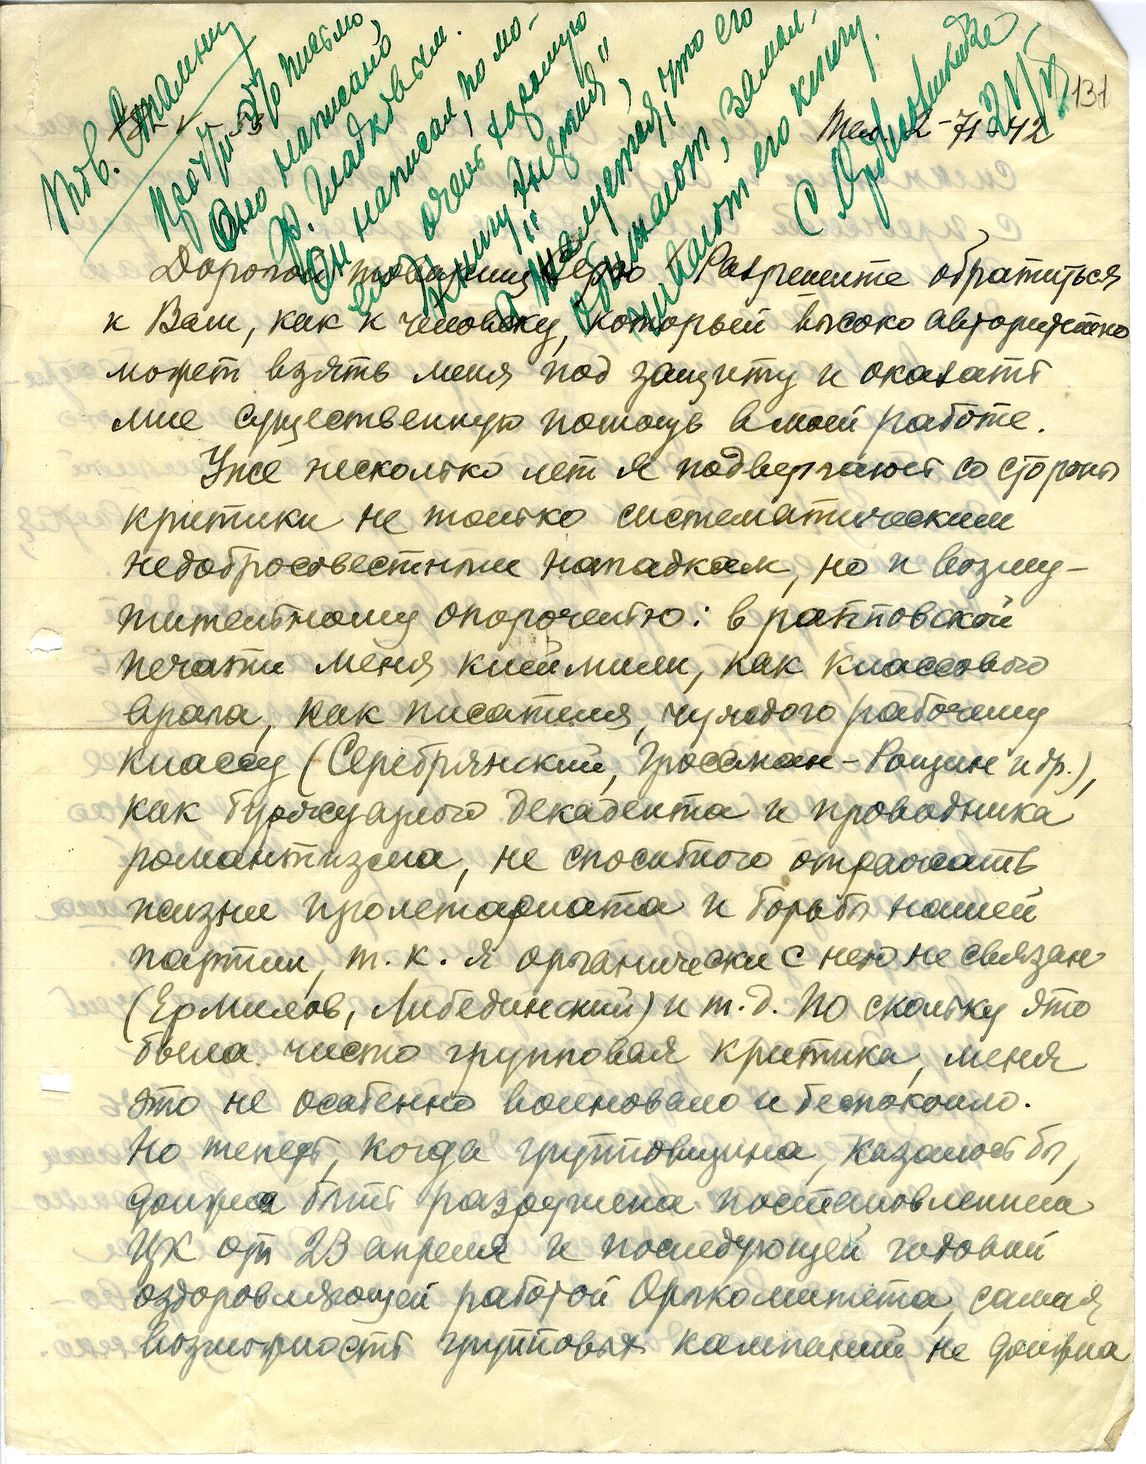 Тов. Сталину
Прочти это письмо,
Оно написано
Ф. Гладковым.
Он написал, по мо-
ему, очень хорошую
книгу „Энергия“
а т
что его
замал-
чивают его книгу.
С Орджоникидзе
131
Тел. 2-71-42
Дорогой товарищ Серго Разрешите обратиться
к Вам, как к человеку, который высоко авторитетно
может взять меня под защиту и оказать
мне существенную помощь в моей работе.
Уже несколько лет я подвергаюсь со стороны
критики не только систематическим
недобросовестным нападкам, но и возму-
тительному опорочению: в рапповской
печати меня клеймили, как классового
врага, как писателя, чуждого рабочему
классу (Серебрянский, Гроссман-Рощин и др.),
как буржуазного декадента и проводника
романтизма, не способного отражать
жизни пролетариата и борьбы нашей
партии, т. к. я органически с нею не связан
(Ермилов, Либединский) и т. д. По скольку это
была чисто групповая критика, меня
это не особенно волновало и беспокоило.
Но теперь, когда групповщина, казалось бы,
должна быть разрушена постановлением
ЦК от 23 апреля и последующей годовой
оздоровляющей работой Оргкомитета, самая
возможность групповых кампаний не должна